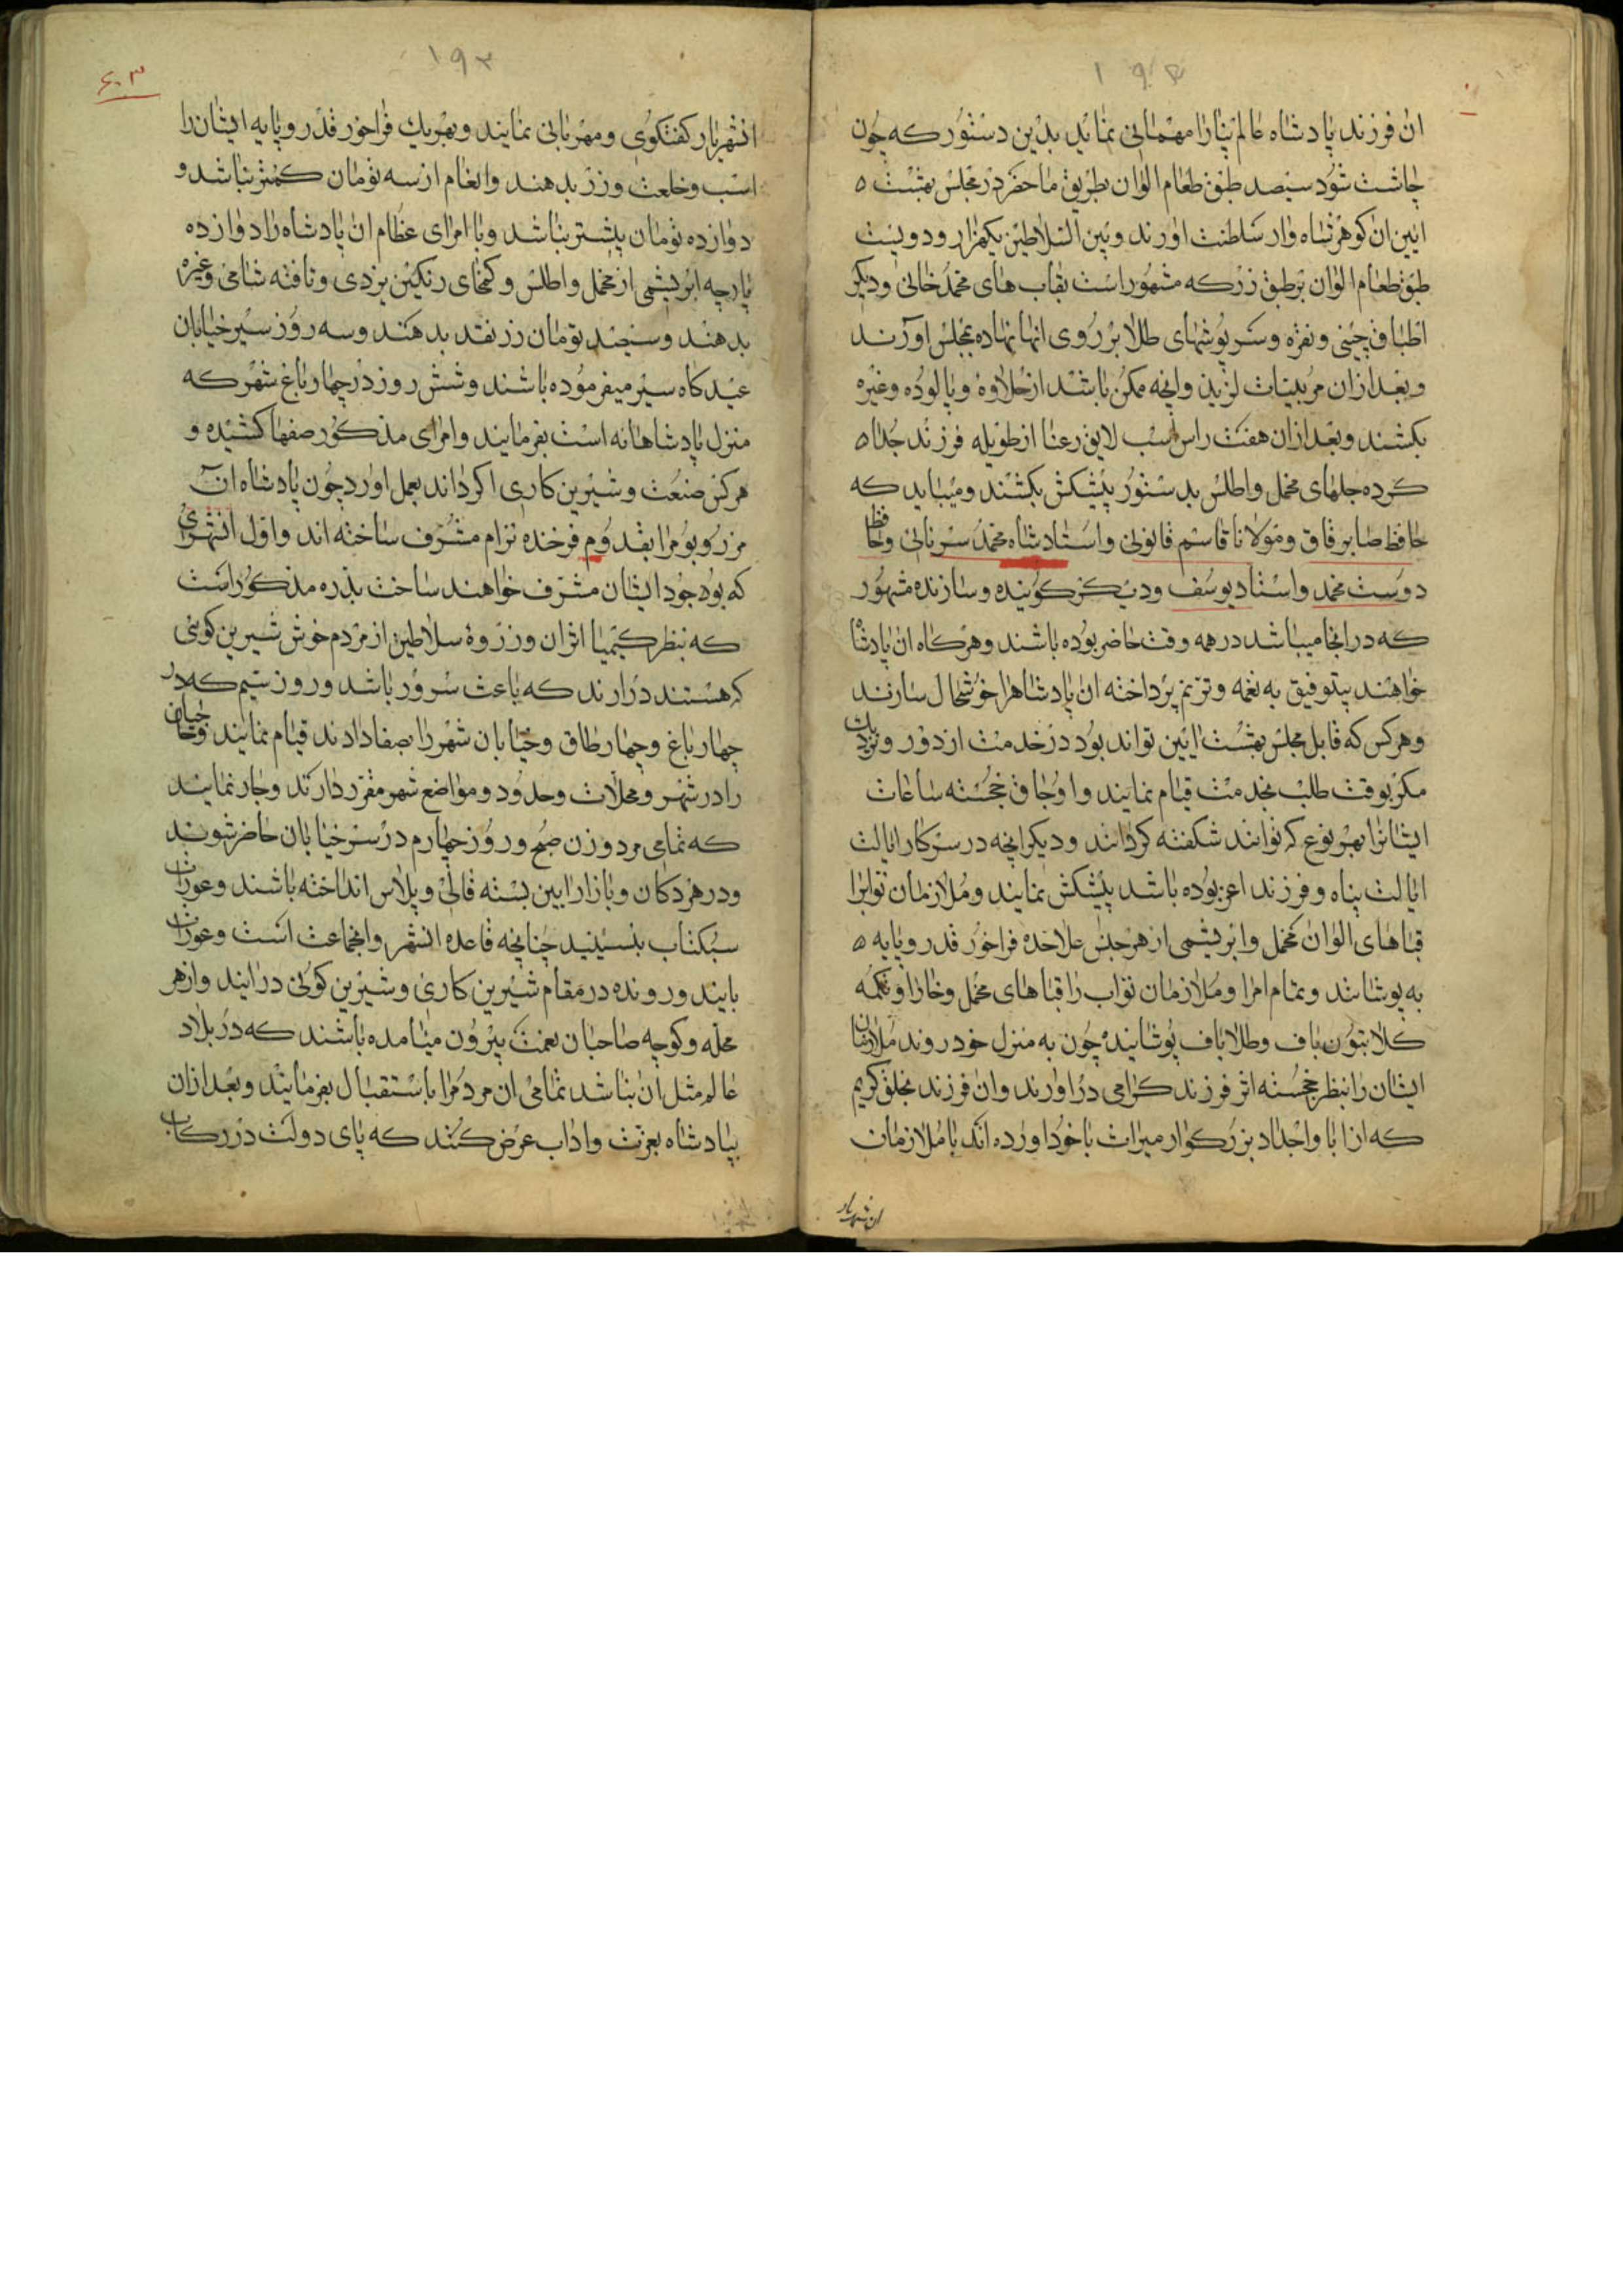 ۱۹۴
ان فرزند پادشاه عالم پناه را مهمانی نماید بدین دستور که چون
چاشت شود سیصد طبق طعام الوان بطریق ماحضر در مجلس بهشت
ایین ان کوهر شاه وار سلطنت اورند و بین السلاطین یکهزار و دویست
طبق طعام الوان بر طبق زر که مشهور است بقاب های محمد خانی و دیکر
اطباق چینی و نقره و سرپوشهای طلا بر روی انها نهاده بمجلس اورند
و بعد ازان مربیات لذیذ وانچه ممکن باشد از حلاوه و پالوده و غیره
بکشند و بعد ازان هفت راس اسب لایق رعنا از طویله فرزند جدا
کرده جلهای مخمل و اطلس بدستور پیشکش بکشند و میباید که
حافظ صابر قاق و مولانا قاسم قانونی و استاد شاه محمد سرنائی و حافظ
دوست محمد و استاد یوسف و دیکر کوینده و سازنده مشهور
که در انجا میباشد در همه وقت حاضر بوده باشند و هرکاه ان پادشاه
خواهند بیتوفیق به نغمه و ترنم پرداخته ان پادشاه را خوشحال سازند
و هر کس که قابل مجلس بهشت ایین تواند بود در خدمت از دور و نزدیک
مکر بوقت طلب بخدمت قیام نمایند و اوجاق خجسته ساعات
ایشانرا بهر نوع که توانند شکفته کردانند و دیکر انچه در سرکار ایالت
ایالت پناه و فرزند اعز بوده باشد پیشکش نمایند و ملازمان نوابرا
قباهای الوان مخمل و ابریشمی از هر جنس علاحده فراخور قدر و پایه
به پوشانند و تمام امرا و ملازمان نواب را قباهای مخمل و خارا و تکمه
کلابتون باف و طلاباف پوشانیده چون به منزل خود روند ملازمان
ایشان را بنظر خجسته اثر فرزند کرامی دراورند وان فرزند بخلق کریم
که از ابا و اجداد بزرکوار میراث باخود اورده اند با ملازمان
ان شهریار
۱۹۳
۶۰۳
انشهریار کفتکوی و مهربانی نمایند و بهر یک فراخور قدر و پایه ایشان را
اسب و خلعت و زر بدهند و انعام از سه تومان کمتر نباشد و
دوازده تومان بیشتر نباشد و با امرای عظام ان پادشاه را دوازده
پارچه ابریشمی از مخمل و اطلس و کمخای رنکین یزدی و تافته شامی و غیره
بدهند و سیصد تومان زر نقد بدهند و سه روز سیر خیابان
عیدکاه سیر میفرموده باشند و شش روز در چهار باغ شهر که
منزل پادشاهانه است بفرمایند و امرای مذکور صفها کشیده و
هر کس صنعت و شیرین کاری اکر داند بعمل اورد چون پادشاه ان
مرز و بوم را بقدوم فرخنده ترام مشرف ساخته اند و اول انشهری
که بوجود ایشان مشرف خواهند ساخت بذره مذکور است
که بنظر کیمیا اثر ان وزروهٔ سلاطین از مردم خوش شیرین کوئی
که هستند درارند که باعث سرور باشد و روز سیم که در
چهار باغ و چهار طاق و خیابان شهر را بصفا دادند قیام نمایند و جارچیان
را در شهر و محلات و حدود و مواضع شهر مقرر دارند و جار نمایند
که تمامی مرد و زن صبح و روز چهارم در سر خیابان حاضر شوند
و در هر دکان و بازار ایین بسته قالی و پلاس انداخته باشند و عورات
سبکتاب بنسینید چنانچه قاعده انشهر و انجماعت است و عورات
بایند و رونده در مقام شیرین کاری و شیرین کوئی درایند و از هر
محله و کوچه صاحبان نعمت بیرون میامده باشند که در بلاد
عالم مثل ان نباشد تمامی ان مردم را باستقبال بفرمایند و بعد ازان
بپادشاه بعزت و اداب عرض کنند که پای دولت در رکاب